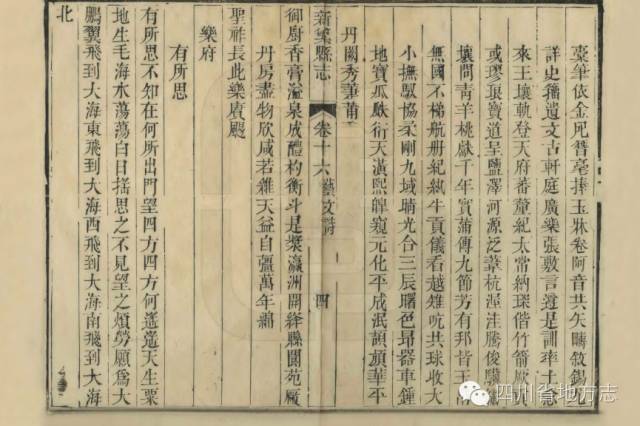 臺筆依金咫簪毫捧玉牀卷阿音共矢疇敘錫
詳史獵遺文古軒庭廣樂張敷言遵是訓率土念
來王壤軌登天府蕃釐紀太常納琛偕竹箭厥
或璆琅寶道呈鹽澤河源泛葦杭渥洼騰俊驥
壤問青羊桃獻千年實蒲傳九節芳有邦皆玉
無國不梯航册紀紈牛貢儀看越雉吭共球收大
小撫馭協柔剛九域晴光合三辰曙色昂器車鍾
地寶孤衍天潢熙皡窺元化平成泯頡頏華平
丹闕秀蓂莆
新繁縣志 卷十六 藝文詩 四
御廚香膏溢泉成醴杓衡斗是槳瀛洲開繹聯閬苑厰
丹房盡物欣咸若雜天益自疆萬年綿
聖祚長此樂賡颺
樂府
有所思
有所思不知在何所出門望四方四方何遙遙天生粟
地生毛海水蕩蕩白日搖思之不見望之煩勞願爲大
鵬翼飛到大海東飛到大海西飛到大海南飛到大海
北
四川省地方志